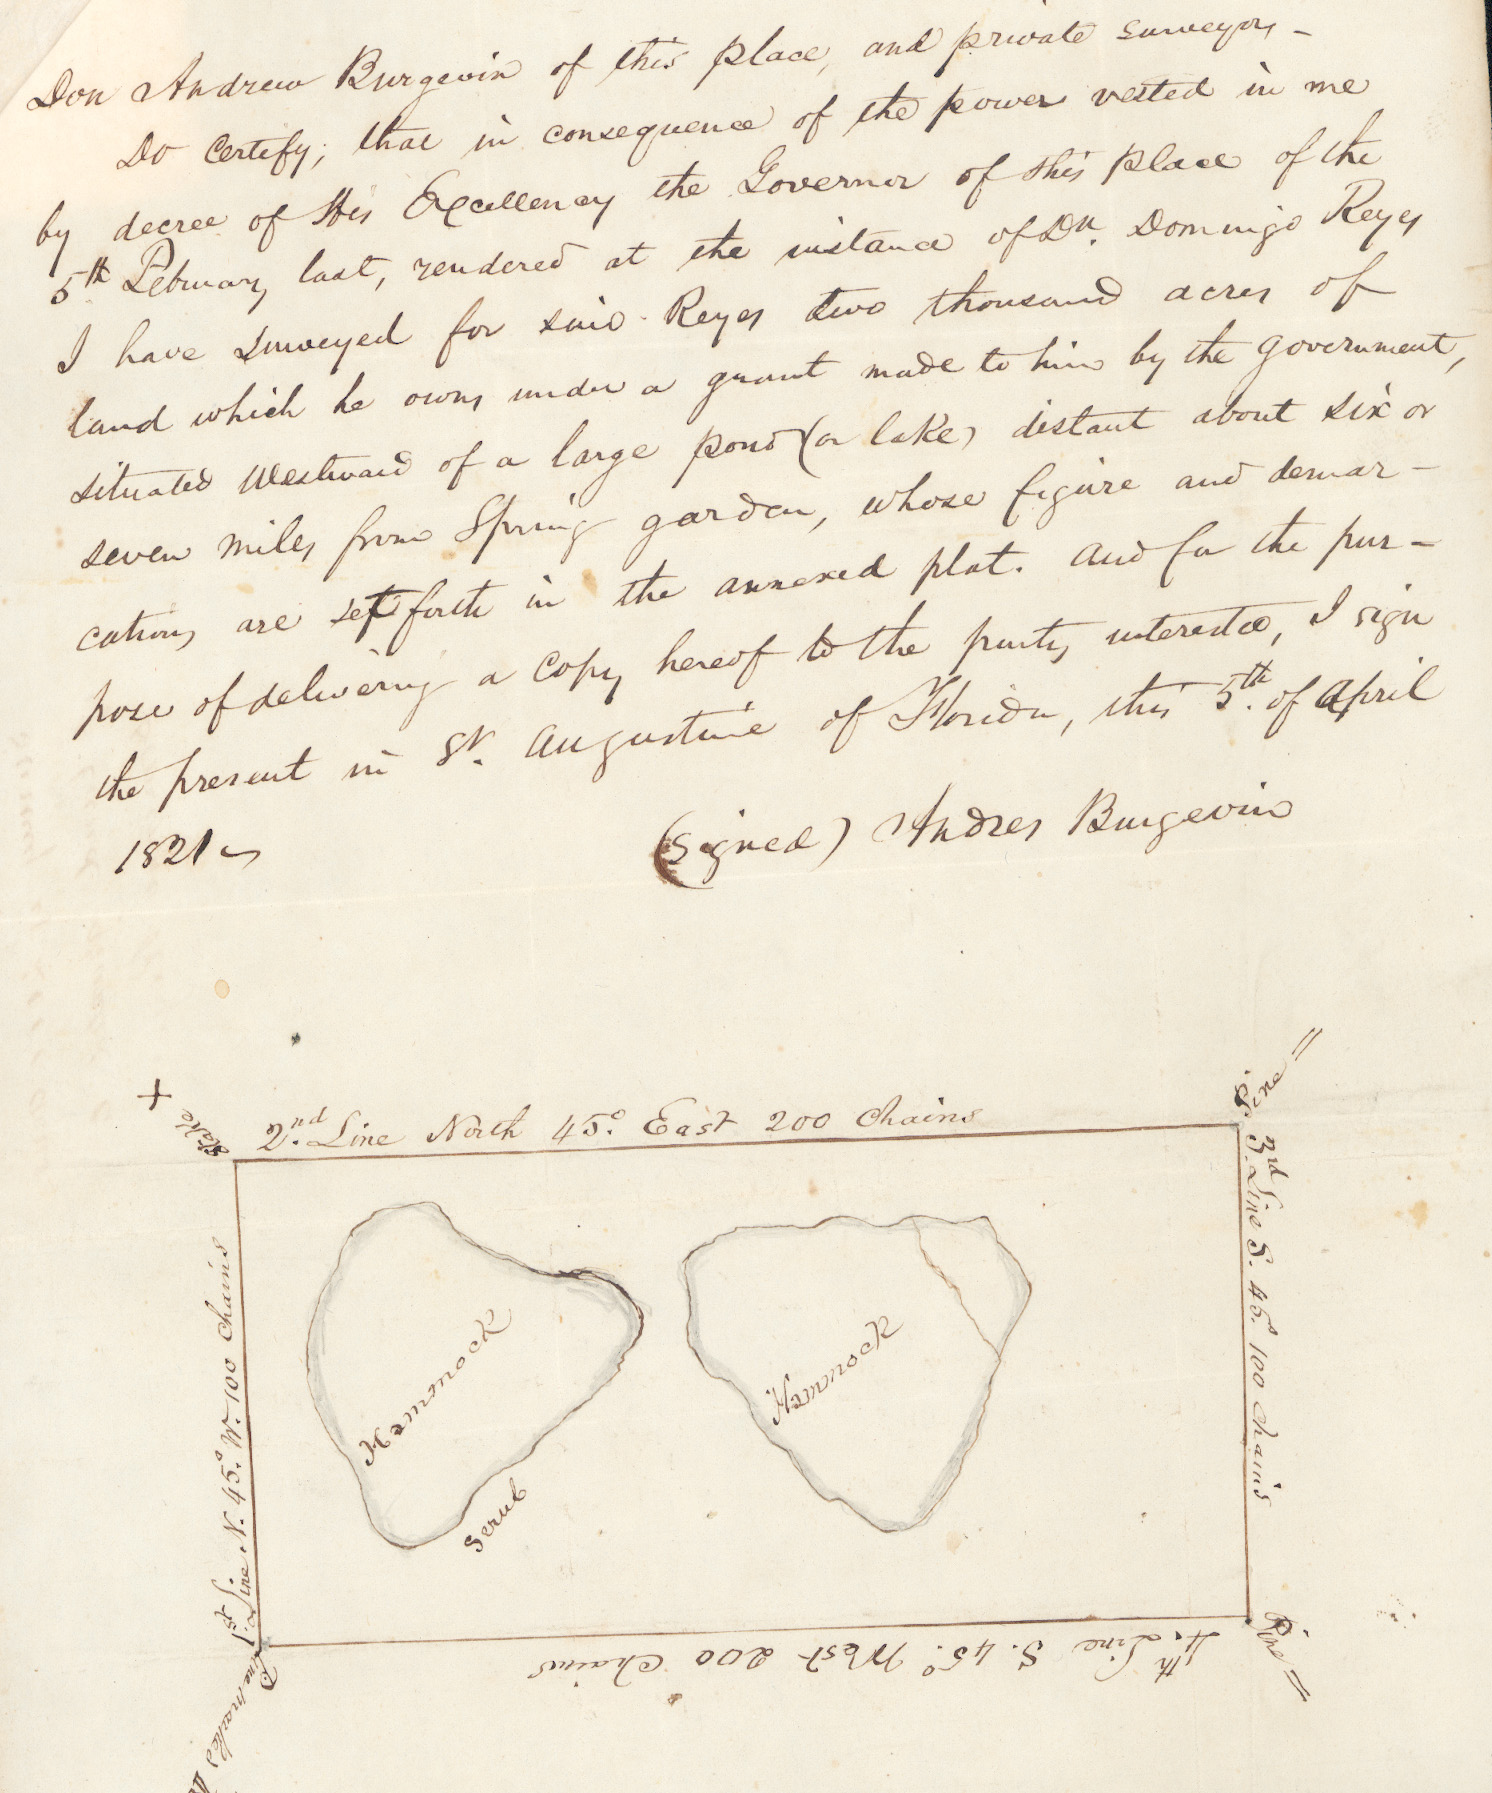 Don Andrew Burgevin of this place, and private surveyor,—
Do Certify; that in consequence of the power vested in me
by decree of His Excellency the Governor of this place of the
5th February last, rendered at the instance of Dn. Domingo Reyes
I have surveyed for said Reyes two thousand acres of
land which he owns under a grant made to him by the Government,
situated Westward of a large pond (or lake) distant about six or
seven miles from Spring garden, whose figure and demar-
cations are set forth in the annexed plat. And for the pur-
pose of delivering a Copy hereof to the party interested, I sign
the present in St. Augustine of Florida, this 5th. of April
1821
(signed) Andres Burgevin
+
Stake
2nd. Line North 45.° East 200 Chains
Pine =
3rd. Line S. 45.° 100 Chains
1st. Line N. 45.° W. 100 Chains
Hammock
Hammock
Scrub
4th. Line S. 45.° West 200 Chains
Pine =
Pine marked